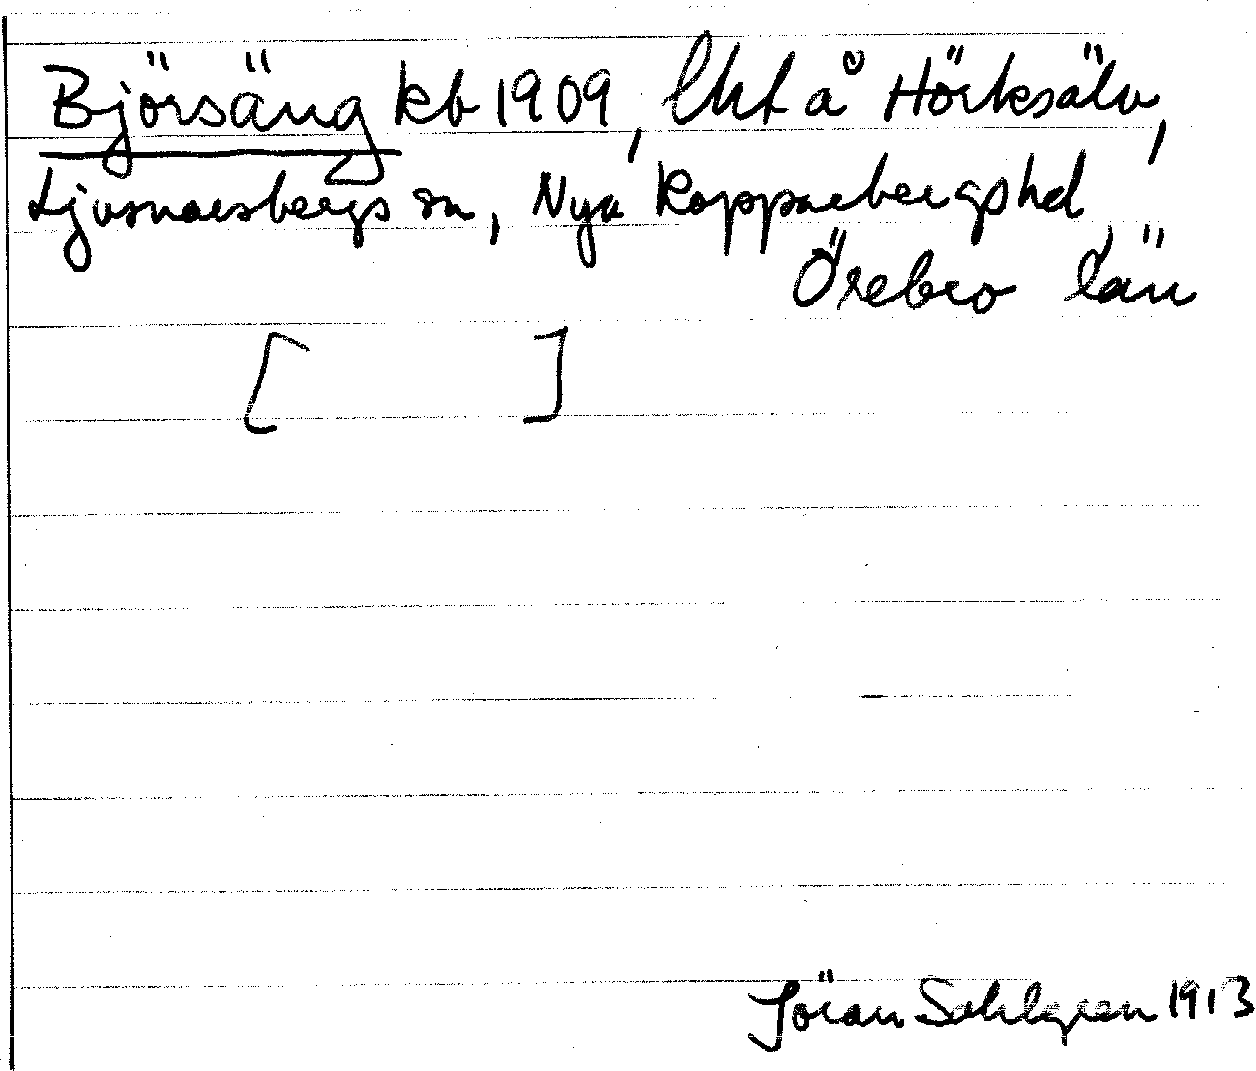 Björsäng kb 1909, lht å Hörksälv,
Ljusnarsbergs sn, Nya Kopparbergs hd
Örebro län
[ ]
Jöran Sahlgren 1913